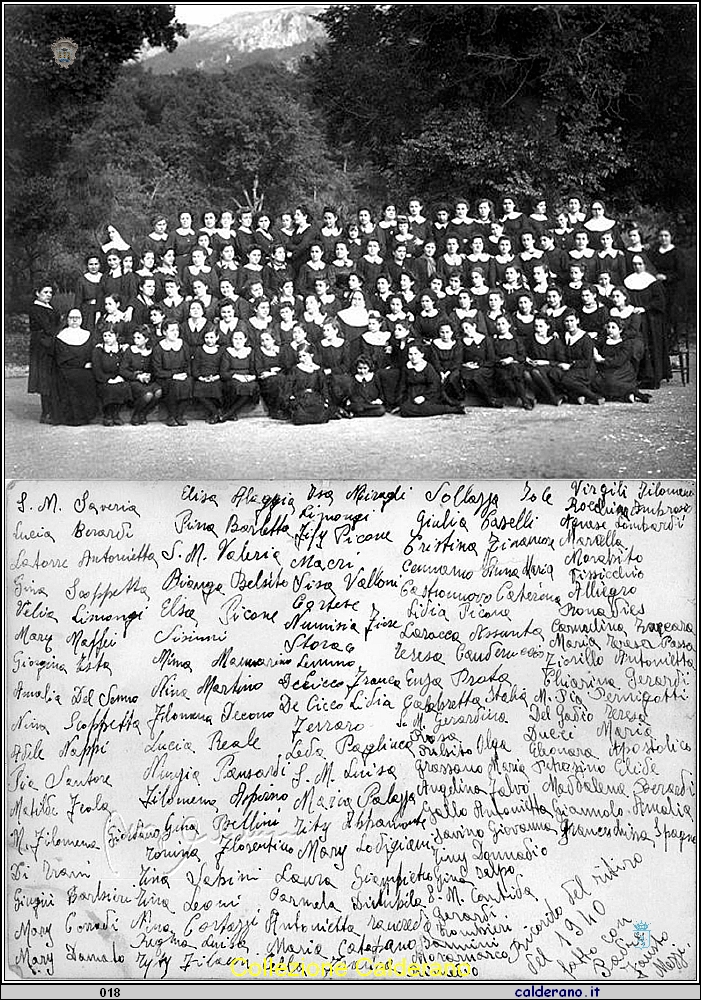 S. M. Saveria
Lucia Berardi
Latorre Antonietta
Gina Scoppetta
Velia Limongi
Mary Maffei
Giorgina Ista
Amalia Del Sonno
Nina Scoppetta
Adile Nappi
Pia Santore
Matilde Izola
M. Filomena Giordano
Di Trani
Giugiù Barbieri
Mary Corradi
Mary Damato
Elisa Alaggia
Pina Barletta
S. M. Valeria
Bianga Belsito
Elsa Picone
Sisinni
Mima Mannarino
Nina Martino
Filomena Iecono
Lucia Reale
Nunzia Pansardi
Filomena Arpino
Gina Bellini
Tonina Florentino
Tina Iabini
Ina Leoni
Nina Cortazzi
Regina Luisa
Isa Miragli
Limongi
Fify Picone
Macrì
Pisa Valloni
Cortese
Nunisia Fiore
Storao
Lummo
De Cicco Franca
De Cico Lidia
Ferraro
Leda Pagliuca
S. M. Luisa
Maria Palazza
Tity Abbamonte
Mary Lodigiani
Laura Giampietro
Carmela Distubila
Antonietta
Maria Catapano
Sollazza Iole
Giulia Caselli
Cristina Zinamore
Cennamo Anna Maria
Castronuovo Caterina
Lidia Picone
Laracca Assunta
Teresa
Enza Prota
Calabretta Italia
S. M. Gerardina
Rosa
Falsito Olga
Grossano Maria
Angelina Falvo
Gallo Antonietta
Savino Giovanna
Finy Donnadio
Gina Salpo
S. M. Candida
Gerardi
Bombieri
Bannini
Moramarco
Virgili Filomena
Rocchina Ambrosio
Agnase Lombardi
Marella
Morabito
Pissicchio
Allegro
Prona Ines
Carmelina Zaccara
Maria Teresa Passa
Fiorillo Antonietta
Chiarina Gerardi
M. Pia Pernigotti
Del Gadio Teresa
Dulcei Maria
Eleonara Apostolico
Petrosino Elide
Maddalena Berardi
Giannolo Amalia
Franceschina Spagna
Ricordo del ritiro
del 1940
fatto con
Padre
Fausto
Mezzi
Collezione Calderano
018
calderano.it